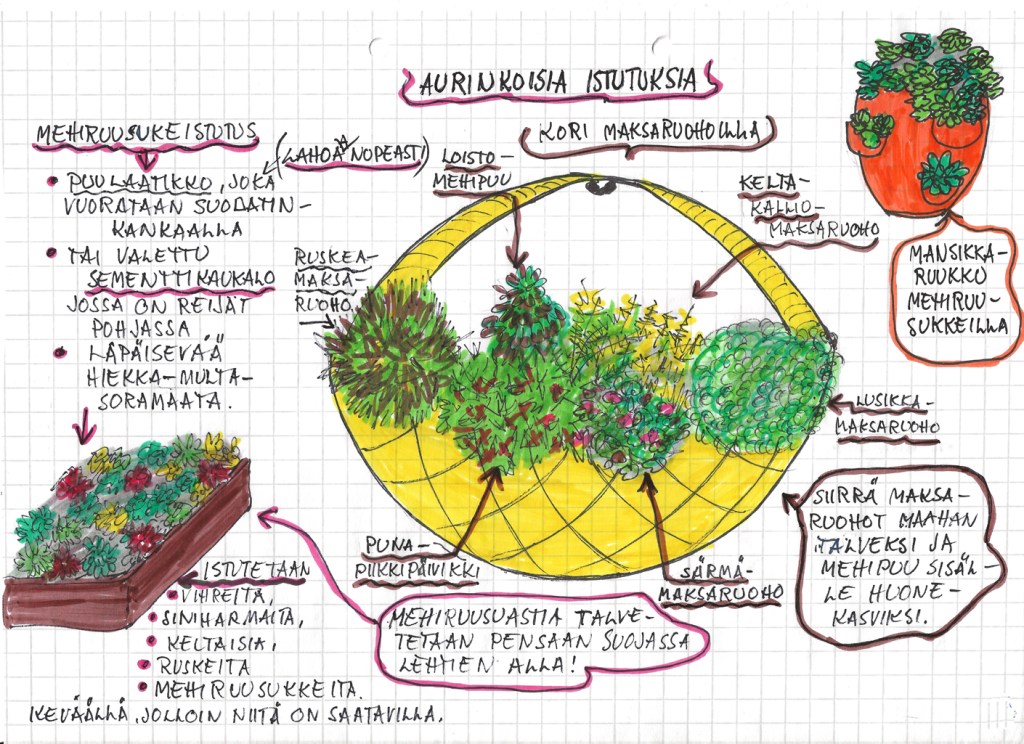 AURINKOISIA ISTUTUKSIA
MEHIRUUSUKEISTUTUS
(LAHOAA NOPEASTI)
• PUULAATIKKO, JOKA
VUORATAAN SUODATIN-
KANKAALLA
• TAI VALETTU
SEMENTTIKAUKALO
JOSSA ON REIJÄT
POHJASSA
• LÄPÄISEVÄÄ
HIEKKA-MULTA-
SORAMAATA.
KORI MAKSARUOHOILLA
LOISTO-
MEHIPUU
KELTA-
KALLIO-
MAKSARUOHO
RUSKEA-
MAKSA-
RUOHO
MANSIKKA-
RUUKKU
MEHIRUU-
SUKKEILLA
LUSIKKA-
MAKSARUOHO
SIIRRÄ MAKSA-
RUOHOT MAAHAN
TALVEKSI JA
MEHIPUU SISÄL-
LE HUONE-
KASVIKSI.
PUNA-
PIIKKIPÄIVIKKI
SÄRMÄ-
MAKSARUOHO
ISTUTETAAN
• VIHREITÄ,
• SINIHARMAITA,
• KELTAISIA,
• RUSKEITA
• MEHIRUUSUKKEITA.
KEVÄÄLLÄ, JOLLOIN NIITÄ ON SAATAVILLA.
MEHIRUUSUASTIA TALVE-
TETAAN PENSAAN SUOJASSA
LEHTIEN ALLA!